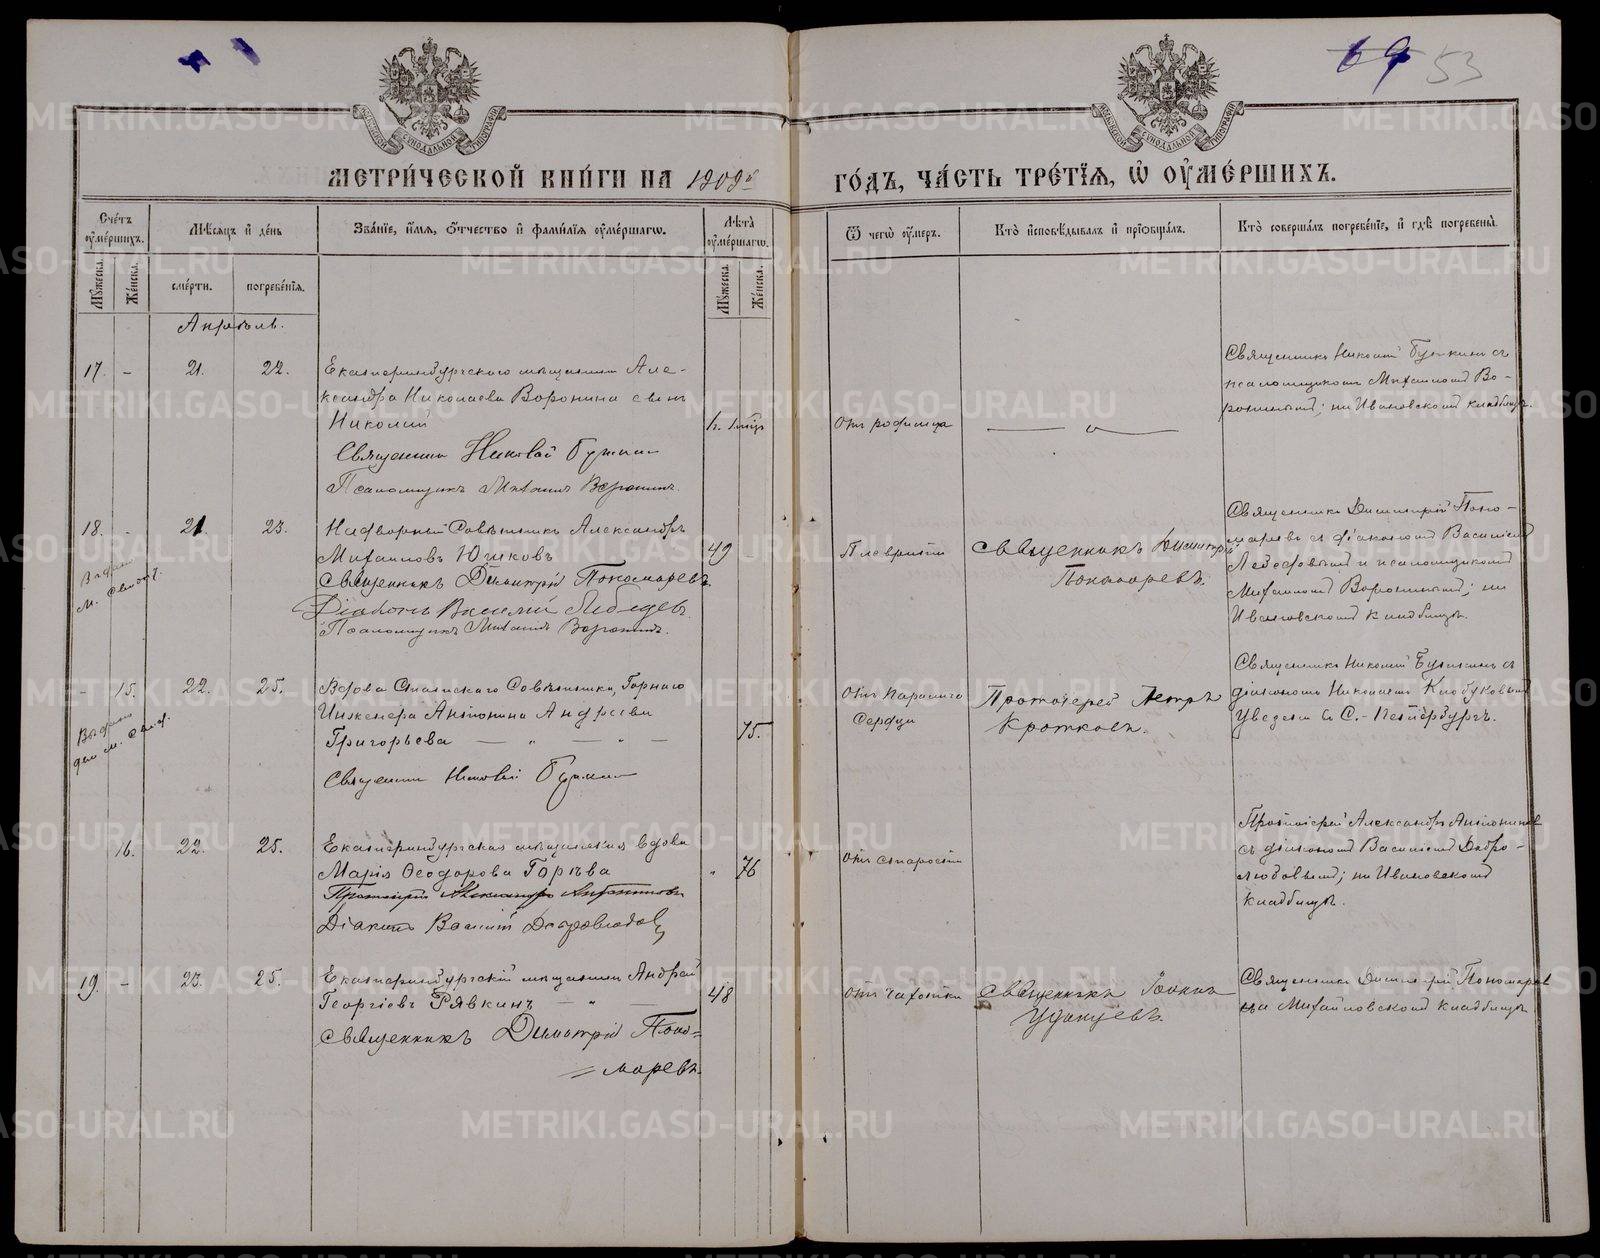 69 53
СѴНОДАЛЬНОЙ ТИПОГРАФІИ
СѴНОДАЛЬНОЙ ТИПОГРАФІИ
МЕТРИ́ЧЕСКОЙ КНИ́ГИ НА 1909й ГО́ДЪ, ЧА́СТЬ ТРЕ́ТІѦ, Ѽ ОУМЕ́РШИХЪ.
Сче́тъ оуме́ршихъ.
Мꙋ́жеска.
Же́нска.
Мѣ́сѧцъ и де́нь
сме́рти.
погребе́нїѧ.
Зва́нїе, и́мѧ, о́тчество и фами́лїѧ оуме́ршагѡ.
Лѣ́та оуме́ршагѡ.
Мꙋ́жеска.
Же́нска.
Ѿ чегѡ̀ оу́меръ.
Кто̀ исповѣ́дывалъ и прїѡбща́лъ.
Кто̀ соверша́лъ погребе́нїе, и гдѣ̀ погребены̀.
Апрѣль.
17. - 21. 22.
Екатеринбургскаго мѣщанина Але-
ксандра Николаева Воронина сынъ
Николай
Священникъ Николай
Псаломщикъ Михаилъ Воронинъ.
Отъ родимца
Священникъ Николай с
псаломщикомъ Михаиломъ Во-
рониным; на Ивановскомъ кладбищѣ.
18. - 21 23.
Надворный Совѣтникъ Александръ
Михаиловъ Юшковъ
Священникъ Димитрій Пономаревъ
Діаконъ Василій Лебедев
Псаломщикъ Михаилъ Воронинъ.
49 -
Плевритъ
Священникъ Димитрій
Пономаревъ.
Священникъ Димитрій Поно-
маревъ с діакономъ Василіемъ
и псаломщикомъ
Михаиломъ Ворониным; на
Ивановскомъ кладбищѣ.
- 15. 22. 25.
Вдова Статскаго Совѣтника, Горнаго
Инженера Антонина Андреева
Григорьева
Священникъ Николай
75.
Отъ паралича
сердца
Протоіерей Петръ
Кротковъ.
Священникъ Николай с
діакономъ Николаемъ Клобуковым
Уведена в С.-Петербургъ.
16. 22. 25.
Екатеринбургская мѣщанская вдова
Марія Ѳеодорова Горѣва
Протоіерей Александръ Антониновъ
Діаконъ Василій Добролюбов
76
отъ старости
Протоіерей Александръ Антониновъ
съ діакономъ Василіемъ Добро-
любовым; на Ивановскомъ
кладбищѣ.
19. - 23. 25.
Екатеринбургскій мѣщанинъ Андрей
Георгіевъ Рявкинъ
Священникъ Димитрій Поно-
маревъ.
48
отъ чахотки
Священникъ Іоаннъ
Священникъ Димитрій Пономаревъ
на Михайловскомъ кладбищѣ
METRIKI.GASO-URAL.RU